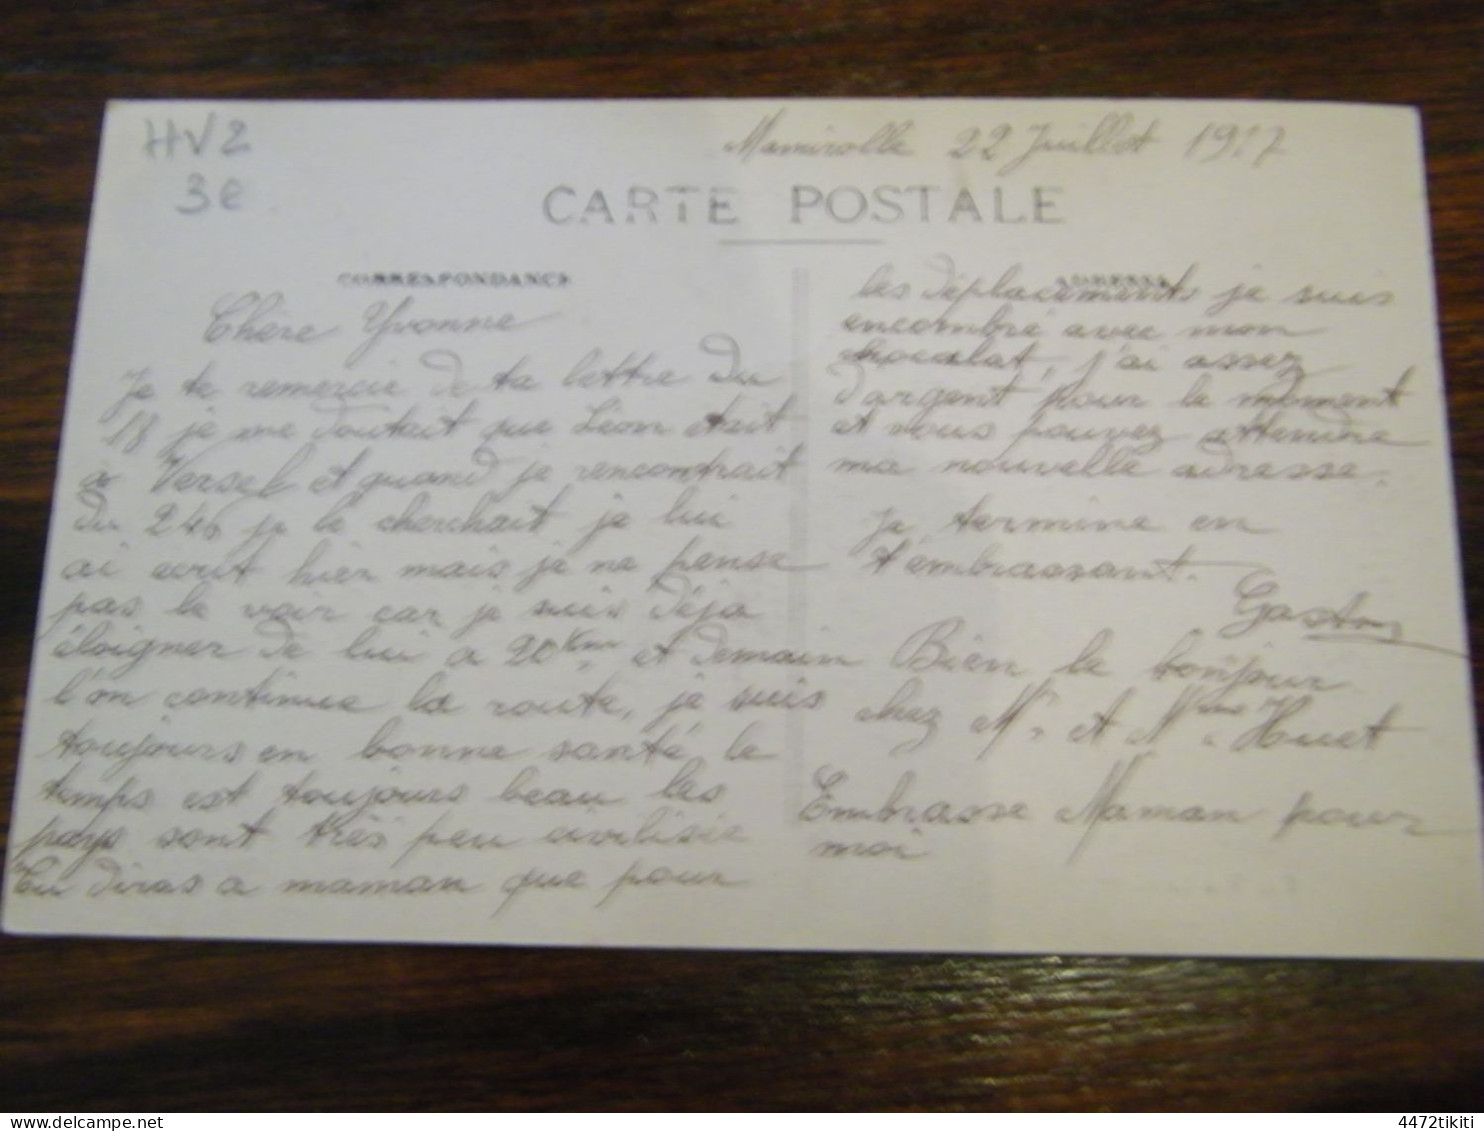 HV2
3e
Mamirolle 22 Juillet 1917
CARTE POSTALE
CORRESPONDANCE
ADRESSE
Chère Yvonne
Je te remercie de ta lettre du
18 je me doutait que Léon était
a Versel et quand je rencontrait
du 246 je le cherchait je lui
ai ecrit hier mais je ne pense
pas le voir car je suis déja
éloigner de lui a 20 Km et demain
l'on continue la route, je suis
toujours en bonne santé le
temps est toujours beau les
pays sont très peu civilisée
tu diras a maman que pour
les déplacements je suis
encombré avec mon
chocolat, j'ai assez
d'argent pour le moment
et vous pouvez attendre
ma nouvelle adresse.
Je termine en
t'embrassant.
Gaston
Bien le bonjour
chez Mr et Mme Huet
Embrasse Maman pour
moi
4472tikiti